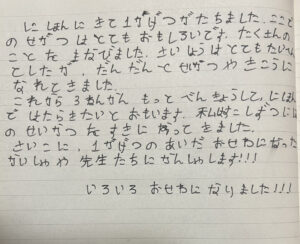 にほんにきて1がげつがたちました。ここと
のせがつはとてもおもしろいです。たくさんの
ことをまなびました。さいしょうはとてもたいへん
でしたが、だんだんとせがつやきこうに
なれてきました。
これから3ねんかんもっとべんきょうして、にほん
ではたらきたいとおもいます。私はこしずつにほん
のせいかつをすきになってきました。
さいごに、1がげつのあいだおせわになった
かいしゃや先生たちにかんしゃします!!!
いろいろおせわになりました!!!